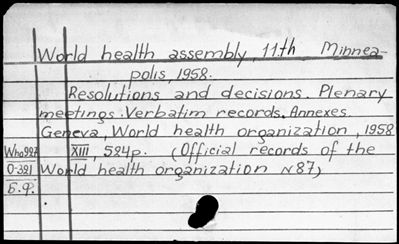 World health assembly, 11.th Minnea-
polis, 1958.
Resolutions and decisions. Plenary
meetings. Verbatim records. Annexes.
Geneva, World health organization, 1958
Who987 XIII, 524p. (Official records of the
0-321 World health organization N87)
Б.г.